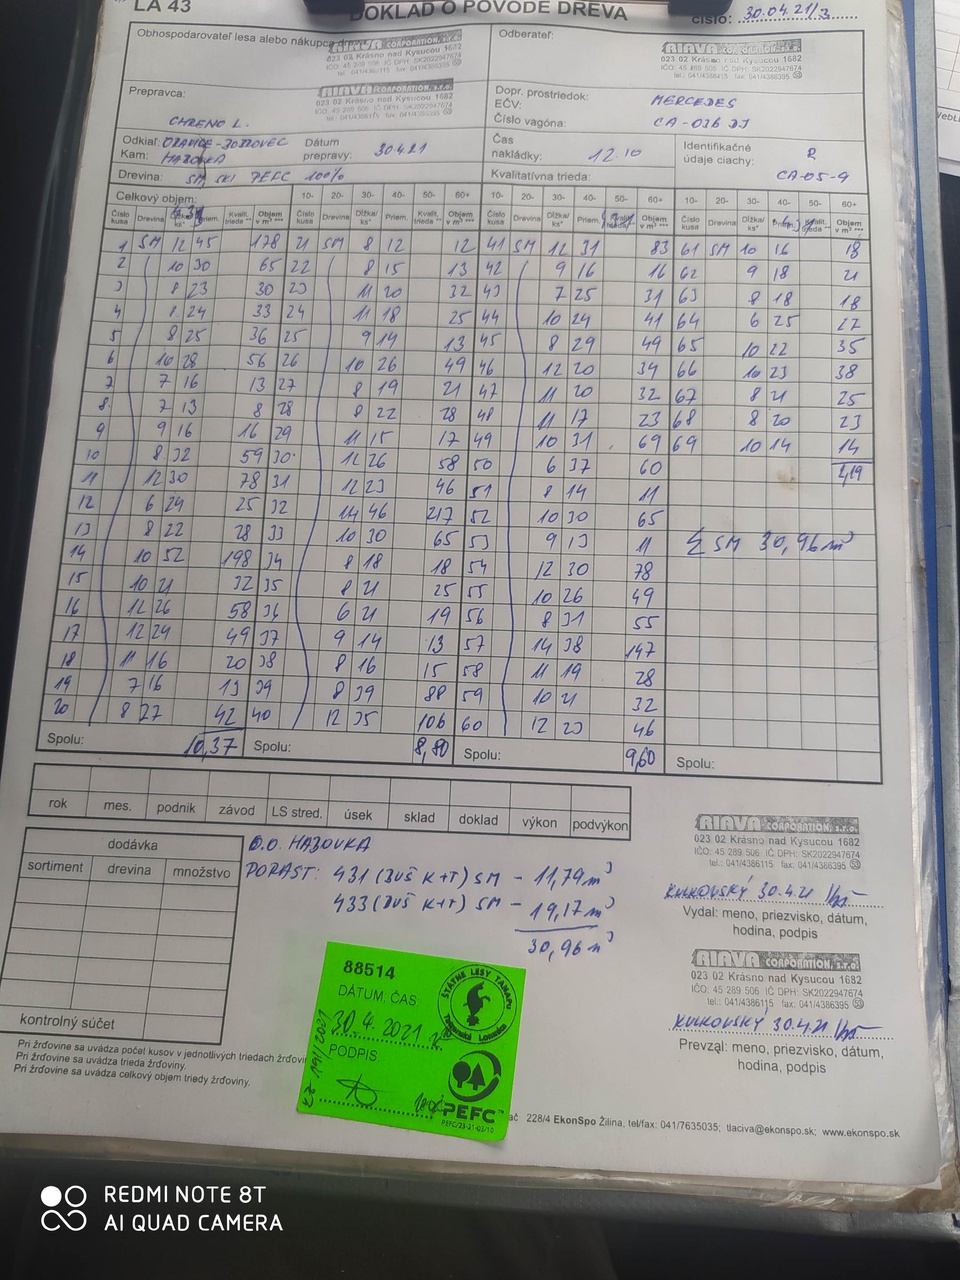 LA 43
DOKLAD O PÔVODE DREVA
číslo: 30.04.21/3
Obhospodarovateľ lesa alebo nákupca dreva:
RIAVA CORPORATION, s.r.o.
023 02 Krásno nad Kysucou 1682
IČO: 45 289 506 IČ DPH: SK2022947674
tel.: 041/4386115 fax: 041/4386395
Odberateľ:
RIAVA CORPORATION, s.r.o.
023 02 Krásno nad Kysucou 1682
IČO: 45 289 506 IČ DPH: SK2022947674
tel.: 041/4386115 fax: 041/4386395
Prepravca:
RIAVA CORPORATION, s.r.o.
023 02 Krásno nad Kysucou 1682
IČO: 45 289 506 IČ DPH: SK2022947674
tel.: 041/4386115 fax: 041/4386395
CHRENO L.
Dopr. prostriedok: MERCEDES
EČV:
Číslo vagóna: CA-036 DJ
Odkiaľ:
Kam: HAZOVKA
Dátum prepravy: 30.4.21
Čas nakládky: 12.10
Identifikačné údaje ciachy: R
CA-05-9
Drevina: SM SKI PEFC 100%
Kvalitatívna trieda:
Celkový objem: 10- 20- 30- 40- 50- 60+ 10- 20- 30- 40- 50- 60+ 10- 20- 30- 40- 50- 60+
Číslo kusa Drevina Dĺžka/ks* Priem. Kvalit. trieda ** Objem v m³ ***
1 SM 12 45 178 21 SM 8 12 12 41 SM 12 31 83 61 SM 10 16 18
2 10 30 65 22 8 15 13 42 9 16 16 62 9 18 21
3 8 23 30 23 11 20 32 43 7 25 31 63 8 18 18
4 8 24 33 24 11 18 25 44 10 24 41 64 6 25 27
5 8 25 36 25 9 14 13 45 8 29 49 65 10 22 35
6 10 28 56 26 10 26 49 46 12 20 34 66 10 23 38
7 7 16 13 27 8 19 21 47 11 20 32 67 8 21 25
8 7 13 8 28 8 22 28 48 11 17 23 68 8 20 23
9 9 16 16 29 11 15 17 49 10 31 69 69 10 14 14
10 8 32 59 30 12 26 58 50 6 37 60 2,19
11 12 30 78 31 12 23 46 51 8 14 11
12 6 24 25 32 14 46 217 52 10 30 65
13 8 22 28 33 10 30 65 53 9 13 11
14 10 52 198 34 8 18 18 54 12 30 78
15 10 21 32 35 8 21 25 55 10 26 49
16 12 26 58 36 6 21 19 56 8 31 55
17 12 24 49 37 9 14 13 57 14 38 147
18 11 16 20 38 8 16 15 58 11 19 28
19 7 16 13 39 8 39 88 59 10 21 32
20 8 27 42 40 12 35 106 60 12 23 46
Σ SM 30,96 m³
Spolu: 10,37 Spolu: 8,80 Spolu: 9,60 Spolu:
rok mes. podnik závod LS stred. úsek sklad doklad výkon podvýkon
dodávka
sortiment drevina množstvo
kontrolný súčet
O.O. HAZOVKA
PORAST: 431 (DVŠ K+T) SM - 11,79 m³
433 (DVŠ K+T) SM - 19,17 m³
30,96 m³
RIAVA CORPORATION, s.r.o.
023 02 Krásno nad Kysucou 1682
IČO: 45 289 506 IČ DPH: SK2022947674
tel.: 041/4386115 fax: 041/4386395
KUKOVSKÝ 30.4.21
Vydal: meno, priezvisko, dátum,
hodina, podpis
RIAVA CORPORATION, s.r.o.
023 02 Krásno nad Kysucou 1682
IČO: 45 289 506 IČ DPH: SK2022947674
tel.: 041/4386115 fax: 041/4386395
KUKOVSKÝ 30.4.21
Prevzal: meno, priezvisko, dátum,
hodina, podpis
88514
DÁTUM, ČAS
30.4.2021
PODPIS
ŠTÁTNE LESY TANAPU
Tatranská Lomnica
PEFC
PEFC/23-21-03/10
Pri žrďovine sa uvádza počet kusov v jednotlivých triedach
Pri žrďovine sa uvádza trieda žrďoviny.
Pri žrďovine sa uvádza celkový objem triedy žrďoviny.
228/4 EkonSpo Žilina, tel/fax: 041/7635035; tlaciva@ekonspo.sk; www.ekonspo.sk
REDMI NOTE 8T
AI QUAD CAMERA